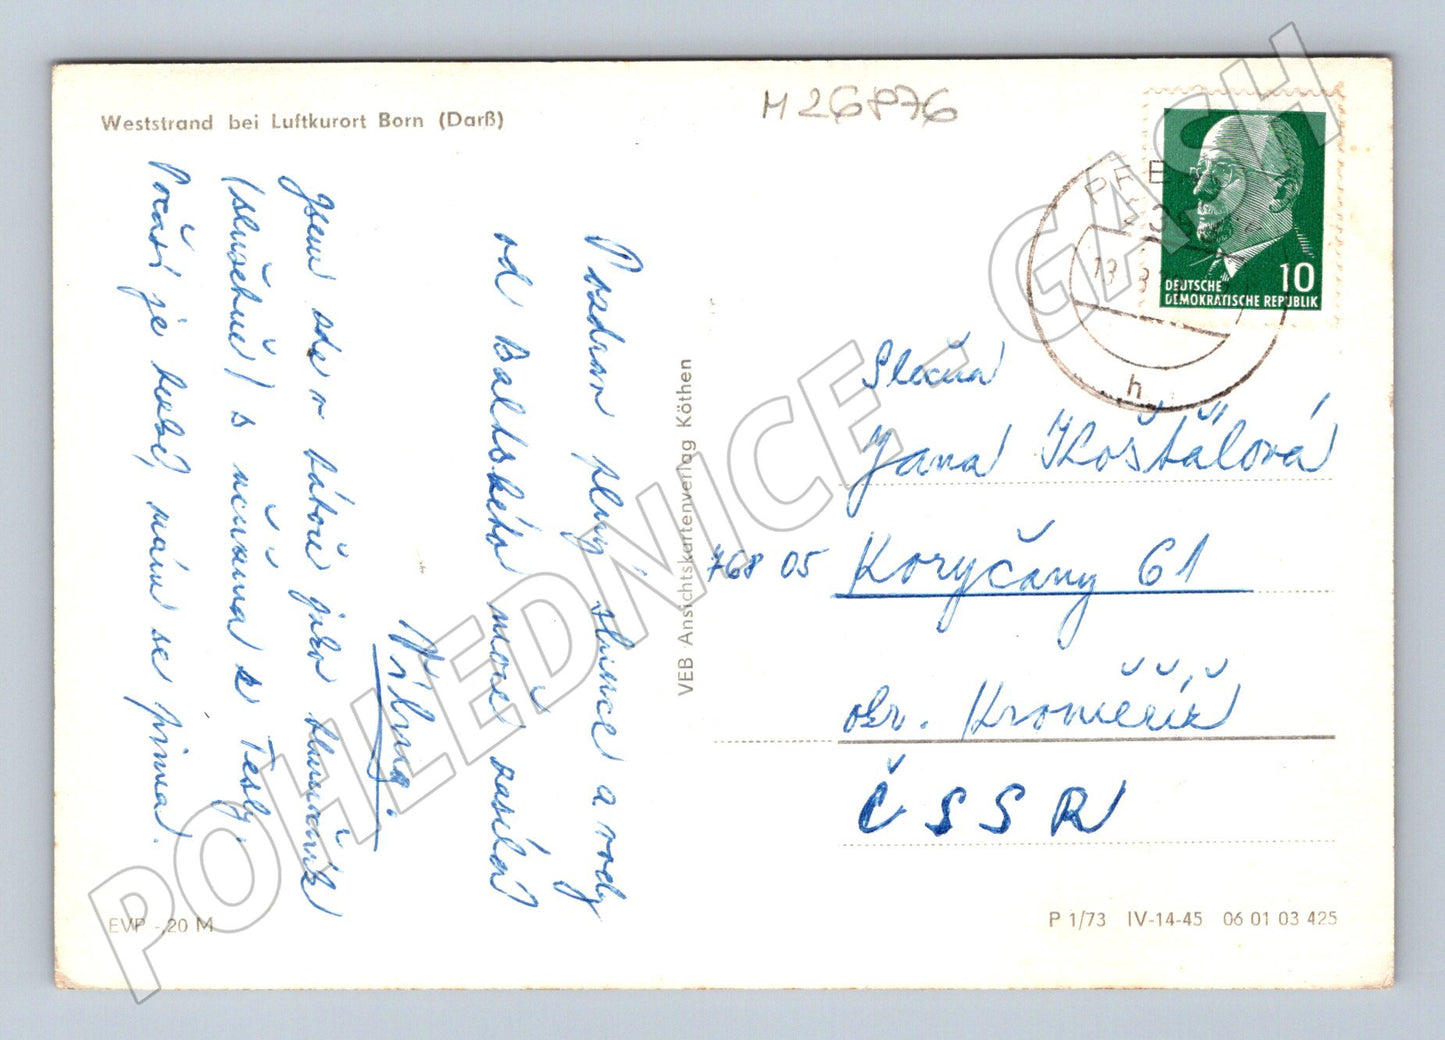 Weststrand bei Luftkurort Born (Darß)
M 26876
DEUTSCHE
DEMOKRATISCHE REPUBLIK
10
h
Pozdrav plný slunce a vody
od Baltského moře zasílá
Vilma.
Jsem zde v táboře jako tlumočník
(služebně) s učnema z Tesly.
Počasí je hezké, mám se príma.
VEB Ansichtskartenverlag Köthen
Slečna
Jana Košťálová
768 05 Koryčany 61
okr. Kroměříž
ČSSR
EVP -,20 M
P 1/73 IV-14-45 06 01 03 425
POHLEDNICE - GASH